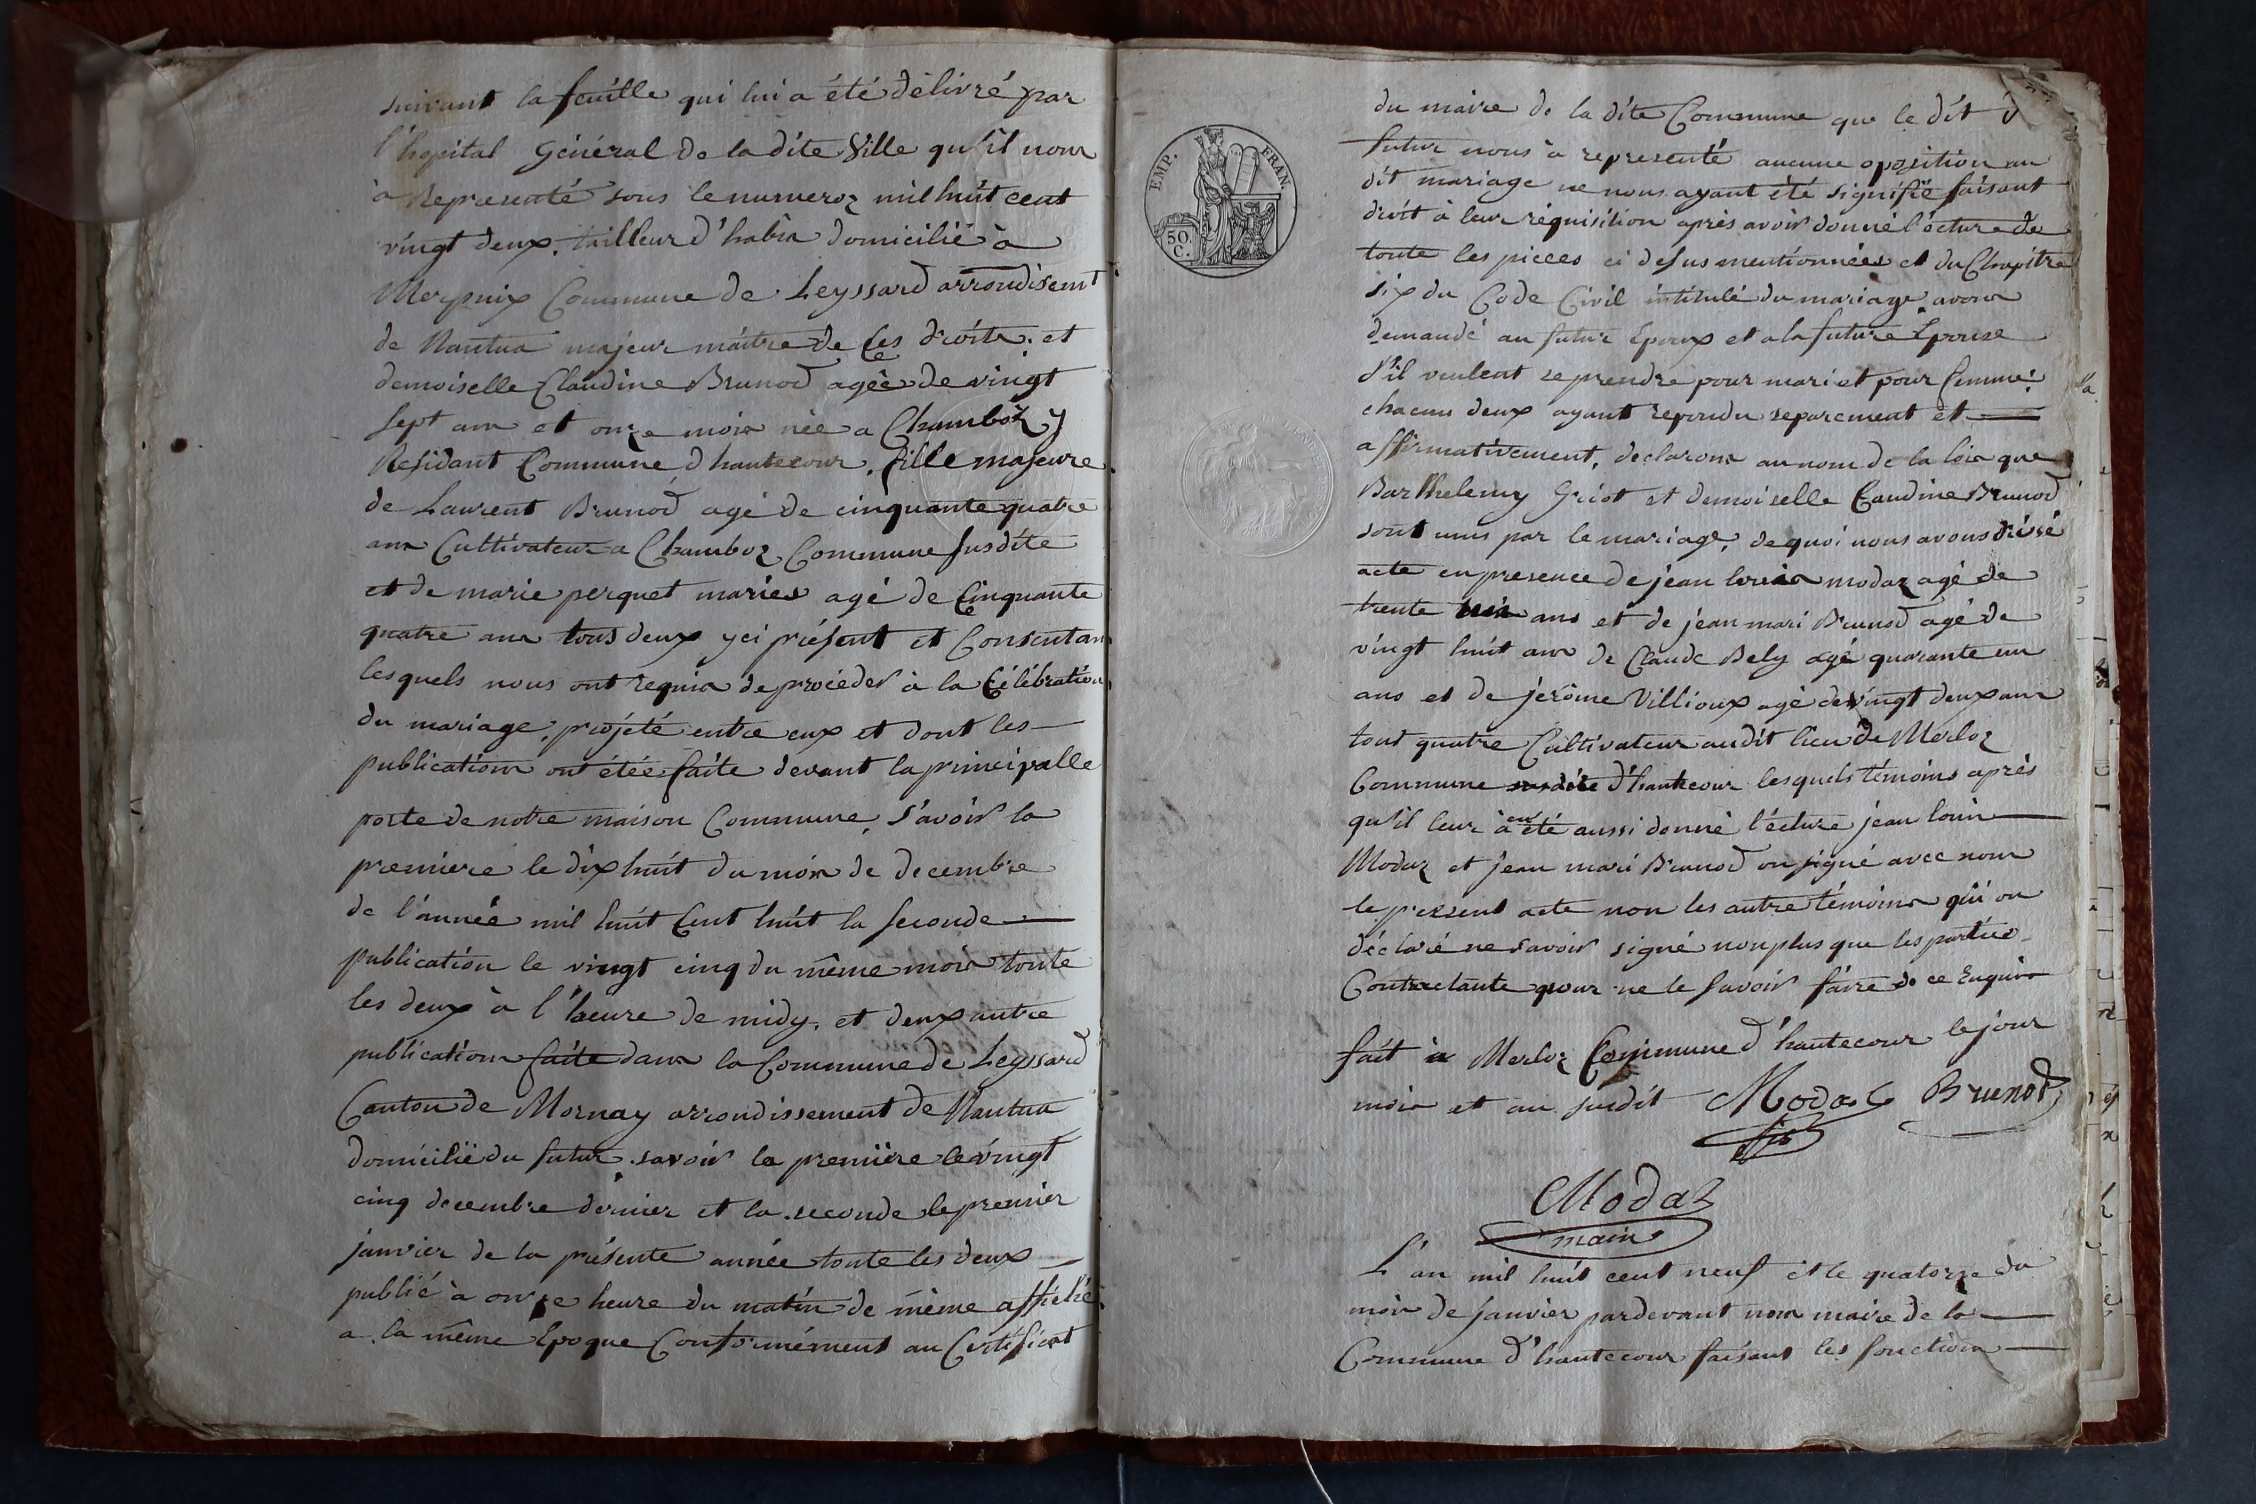 suivant la feuille qui lui a été délivré par
l'hopital Géneral de la dite Ville qu'il nour
à Representé sous le numeroz mil huit cent
vingt deux. tailleur d'habir domicilié à
Commune de Leyssard arrondisemt
de Nantua majeur maitre de Ces droits. et
demoiselle Claudine Brunod agée de vingt
sept ans et onze mois née a Chamboz y
Residant Commune d'hautecour. fille majeure
de Laurent Brunod agé de cinquante quatre
ans Cultivateur a Chamboz Commune susdite
et de marie perquet mariés agé de Cinquante
quatre ans tous deux yci présent et Consentan
lesquels nous ont requis de procéder à la Célébration
du mariage projété entre eux et dont les
publications ont étée faite devant la principalle
porte de notre maison Commune, s'avoir la
premiere le dix huit du mois de decembre
de l'année mil huit Cent huit la seconde
publication le vingt cinq du même mois toute
les deux à l'heure de midy. et deux autre
publications faite dans la Commune de Leyssard
Canton de Mornay arrondissement de Nantua
domicilié du futur. savoir la première le vingt
cinq decembre dernier et la seconde le premier
janvier de la présente année toute les deux
publié à onze heure du matin de même affiché
a la même Epoque Conformément au Certificat
EMP. FRAN.
50.
C.
du maire de la dite Commune que le dit
futur nous à representé aucune oposition au
dit mariage ne nous ayant été signifié faisant
droit à leur réquisition après avoir donné l'écture de
toute les pieces ci desus mentionnées et du Chapitre
six du Code Civil intitulé du mariage avons
demandé au futur Epoux et a la future Epouse
s'il veulent se prendre pour mari et pour femme.
chacun deux ayant repondu separement et
affirmativement, declarons au nom de la loix que
Barthelemy Griot et demoiselle Caudine Brunod
sont unis par le mariage, de quoi nous avons dréssé
acte en presence de jean louis modaz agé de
trente ans et de jean mari Brunod agé de
vingt huit ans de Claude Bely agé quarante un
ans et de jérôme Villioux agé de vingt deux ans
tout quatre Cultivateur audit lieu de Merloz
Commune susdite d'hautecour lesquels témoins après
qu'il leur à été aussi donné l'écture jean louis
Modaz et jean mari Brunod on signé avec nous
le pressent acte non les autre témoins qui on
déclaré ne savoir signé non plus que les parties
Contractante pour ne le savoir faire de ce Enquis
fait à Merloz Commune d'hautecour le jour
mois et an susdit Modaz Brunod
fis
Modaz
maire
L'an mil huit cent neuf et le quatorze du
mois de janvier pardevant nous maire de la
Commune d'hautecour faisant les fonctions